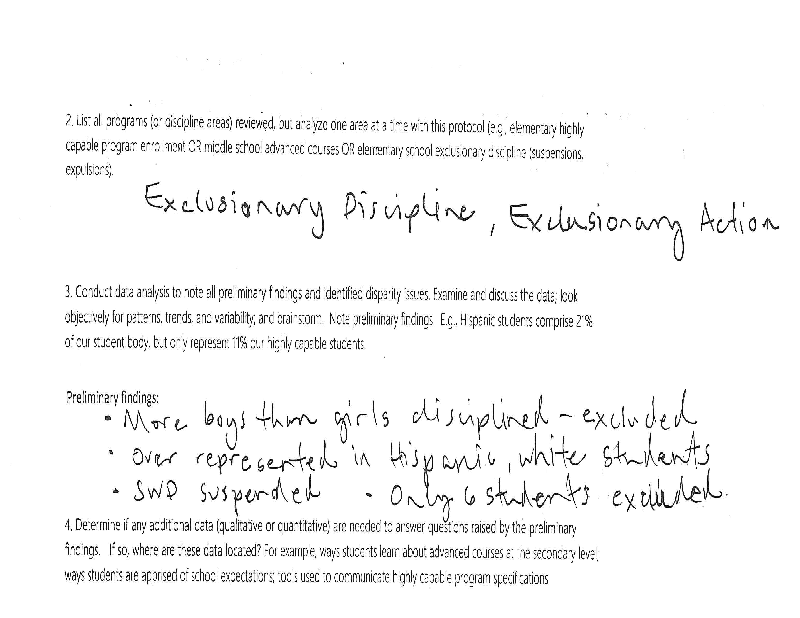 2. List all programs (or discipline areas) reviewed, but analyze one area at a time with this protocol (e.g., elementary highly
capable program enrollment OR middle school advanced courses OR elementary school exclusionary discipline (suspensions,
expulsions).
Exclusionary Discipline, Exclusionary Action
3. Conduct data analysis to note all preliminary findings and identified disparity issues. Examine and discuss the data; look
objectively for patterns, trends, and variability; and brainstorm. Note preliminary findings. E.g., Hispanic students comprise 21%
of our student body, but only represent 11% our highly capable students.
Preliminary findings:
• More boys than girls disciplined - excluded
• Over represented in Hispanic, white students
• SWD suspended • Only 6 students excluded.
4. Determine if any additional data (qualitative or quantitative) are needed to answer questions raised by the preliminary
findings. If so, where are these data located? For example, ways students learn about advanced courses at the secondary level;
ways students are apprised of school expectations; tools used to communicate highly capable program specifications